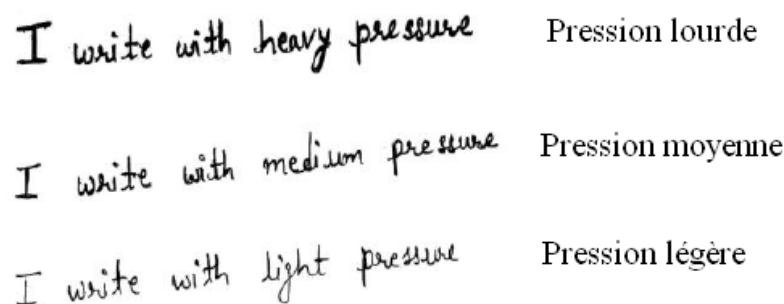 I write with heavy pressure Pression lourde
I write with medium pressure Pression moyenne
I write with light pressure Pression légère